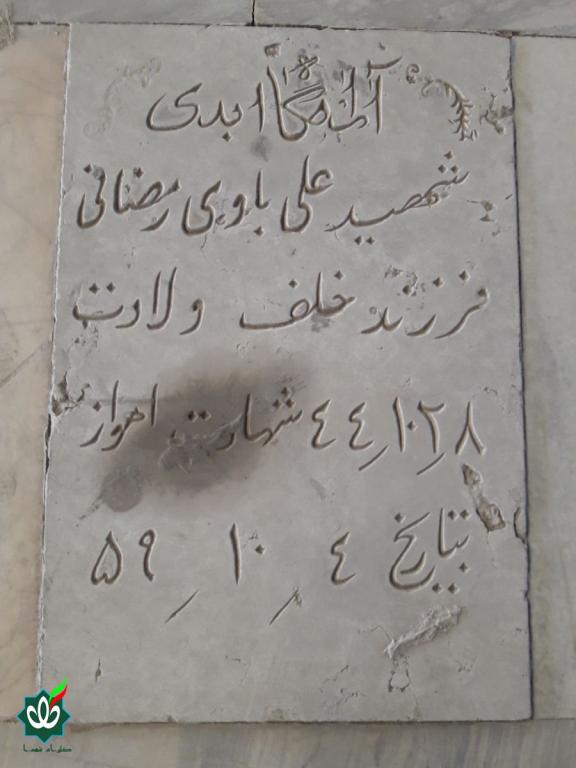 آرامگاه ابدی
شهید علی باوی رمضانی
فرزند خلف ولادت
۲۸ـ۱۰ـ۴۴ شهادت اهواز
بتاریخ ۴ ـ ۱۰ ـ ۵۹
گلزار شهدا